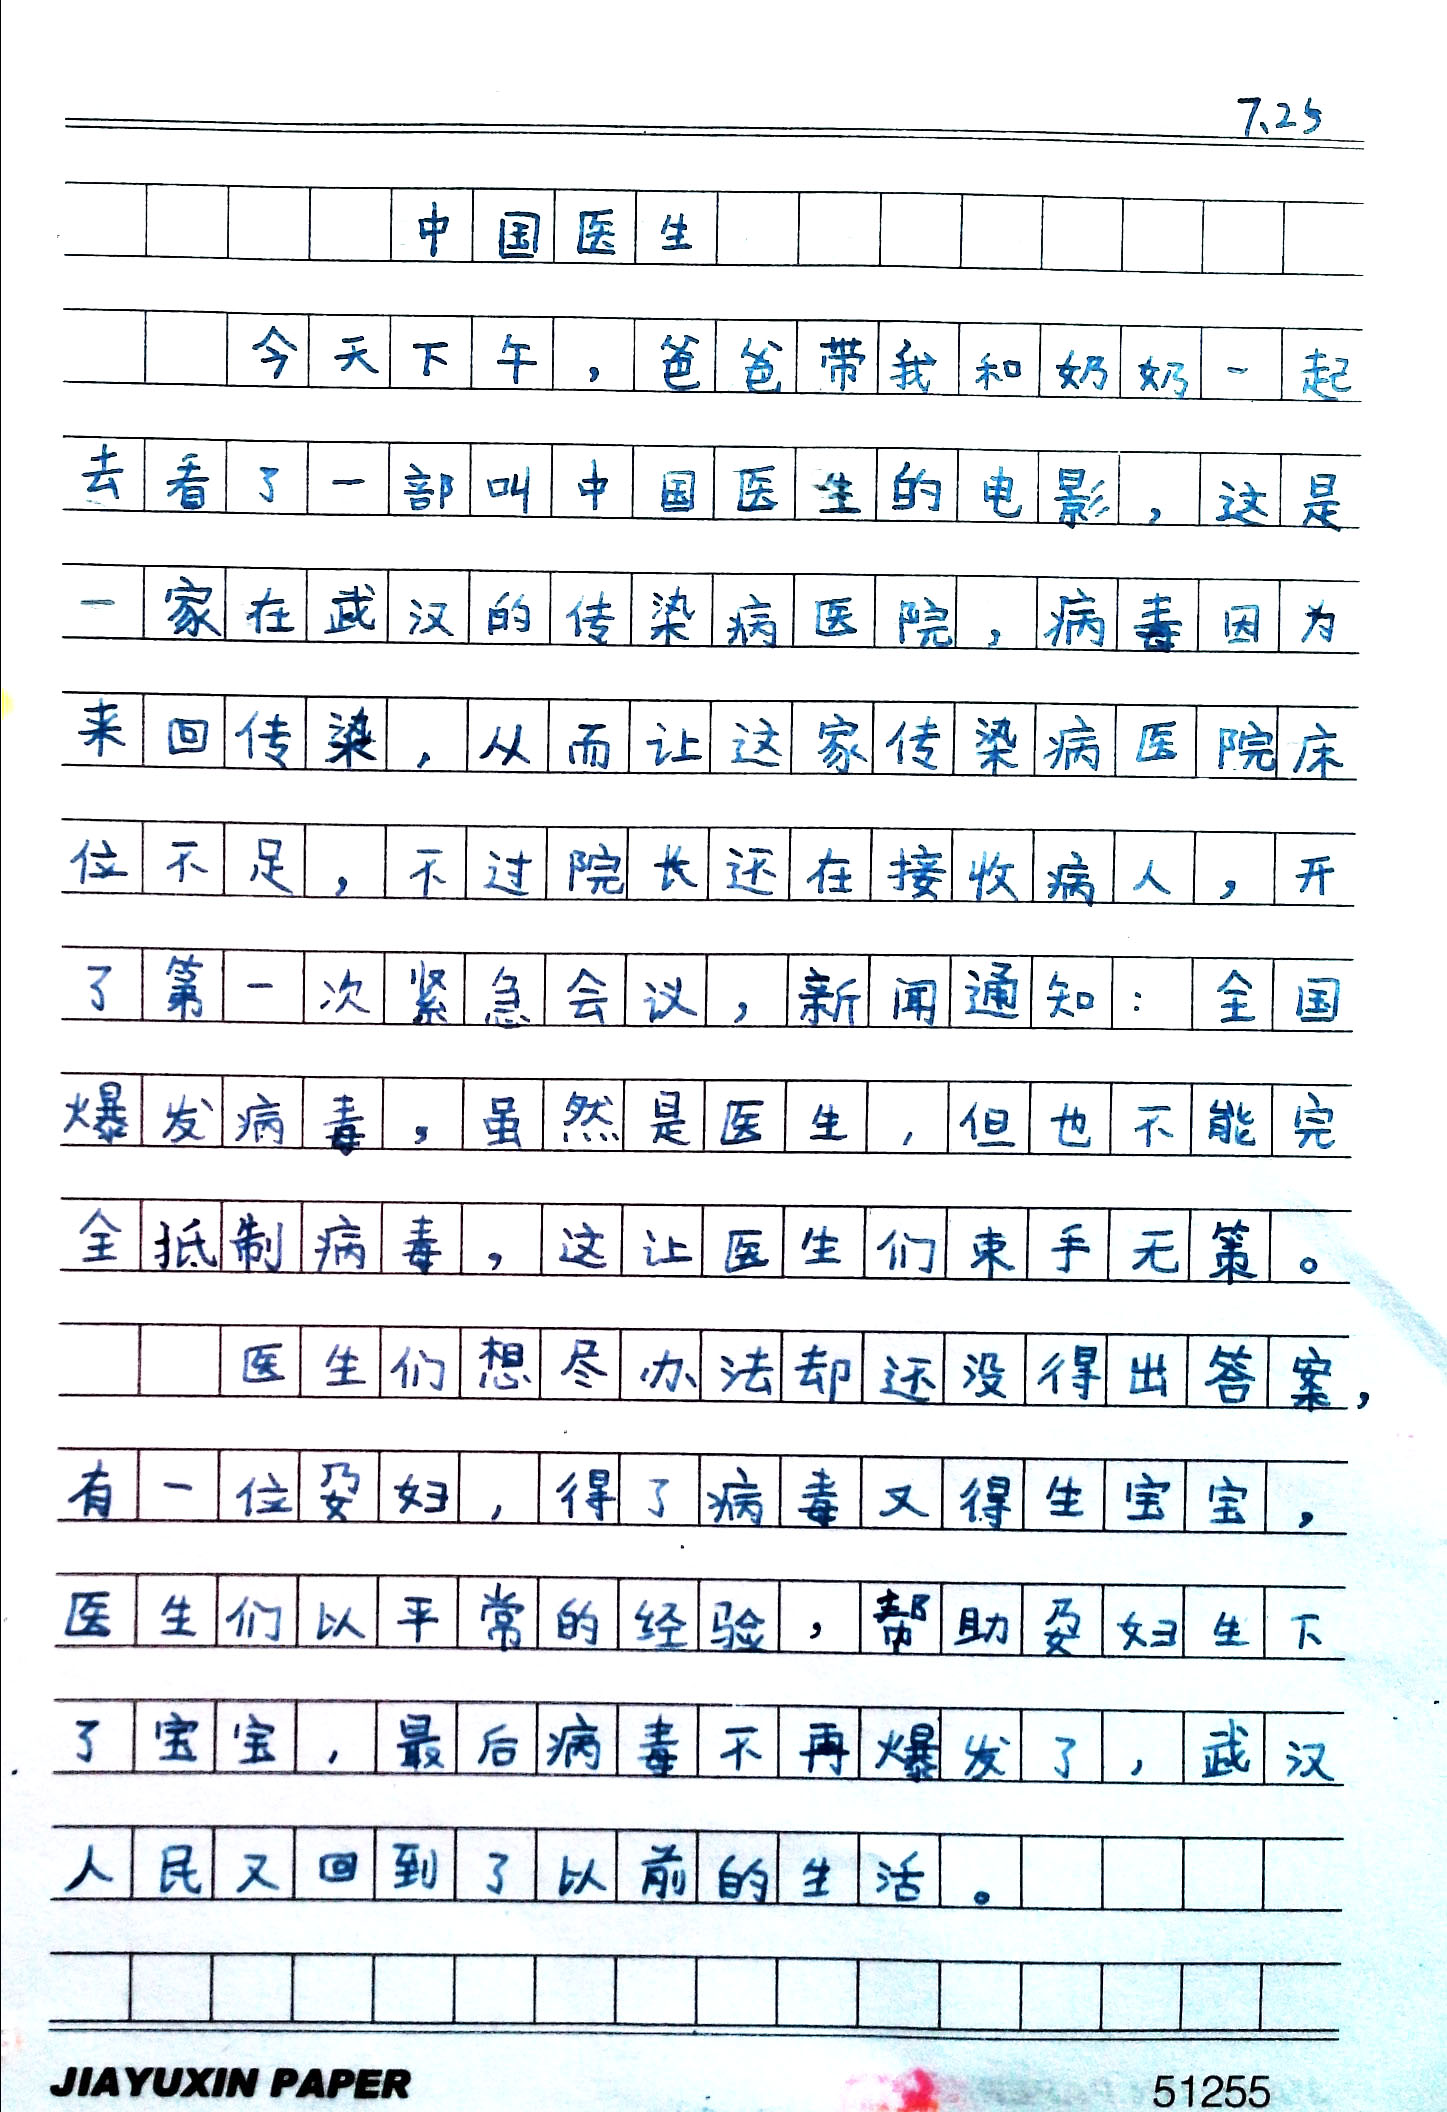 7.25
中国医生
今天下午，爸爸带我和奶奶一起
去看了一部叫中国医生的电影，这是
一家在武汉的传染病医院，病毒因为
来回传染，从而让这家传染病医院床
位不足，不过院长还在接收病人，开
了第一次紧急会议，新闻通知：全国
爆发病毒，虽然是医生，但也不能完
全抵制病毒，这让医生们束手无策。
医生们想尽办法却还没得出答案，
有一位孕妇，得了病毒又得生宝宝，
医生们以平常的经验，帮助孕妇生下
了宝宝，最后病毒不再爆发了，武汉
人民又回到了以前的生活。
JIAYUXIN PAPER
51255